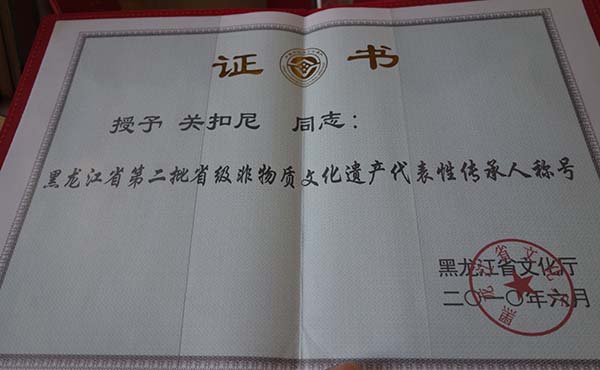 证书
授予 关扣尼 同志：
黑龙江省第二批省级非物质文化遗产代表性传承人称号
黑龙江省文化厅
二〇一〇年六月